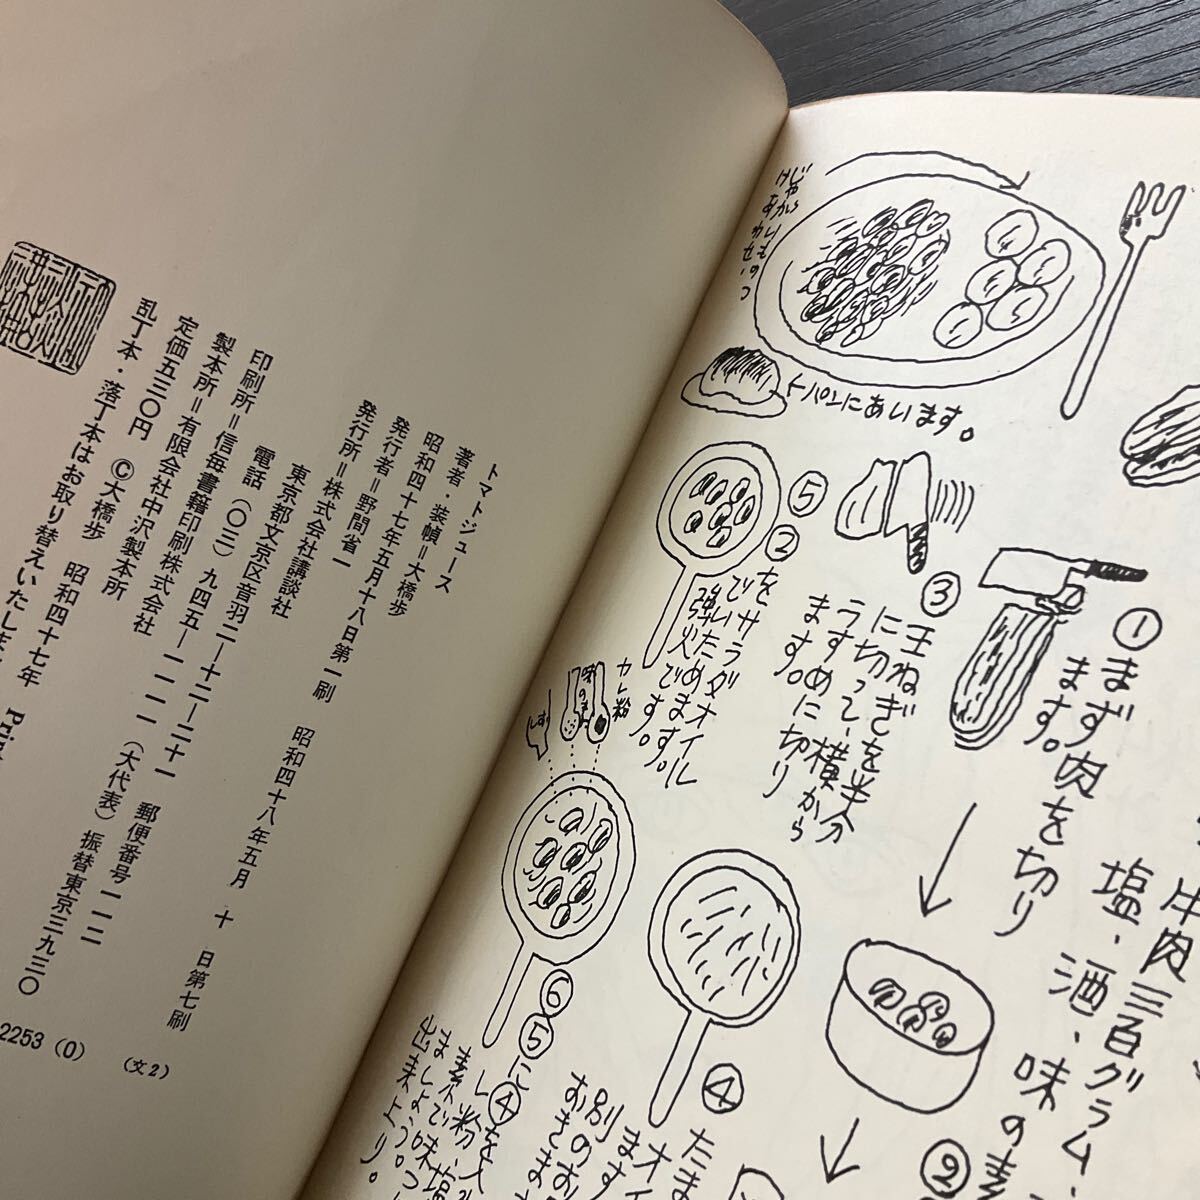 トマトジュース
著者・装幀=大橋歩
昭和四十七年五月十八日第一刷 昭和四十八年五月 十 日第七刷
発行者=野間省一
発行所=株式会社講談社
東京都文京区音羽二—十二—二十一 郵便番号一一二
電話(〇三)九四五—一一一一(大代表)振替東京三九三〇
印刷所=信毎書籍印刷株式会社
製本所=有限会社中沢製本所
定価五三〇円 ©大橋歩 昭和四十七年
乱丁本・落丁本はお取り替えいたしま
2253 (0) (文2)
牛肉三百グラム
塩・酒・味の素
①まず肉を切り
ます。
②
③玉ねぎを半分
に切って、横から
うすめに切り
ます。
④たま
オイ
ます
別のお
おきま
⑤②
をサラダオイル
でいためます。
強火です。
カレー粉
味の素
⑥⑤に
④を入
粉・
素で味
ましょう。
出来上り。
パンにあいます。
じゃがいもの
つけあわせ